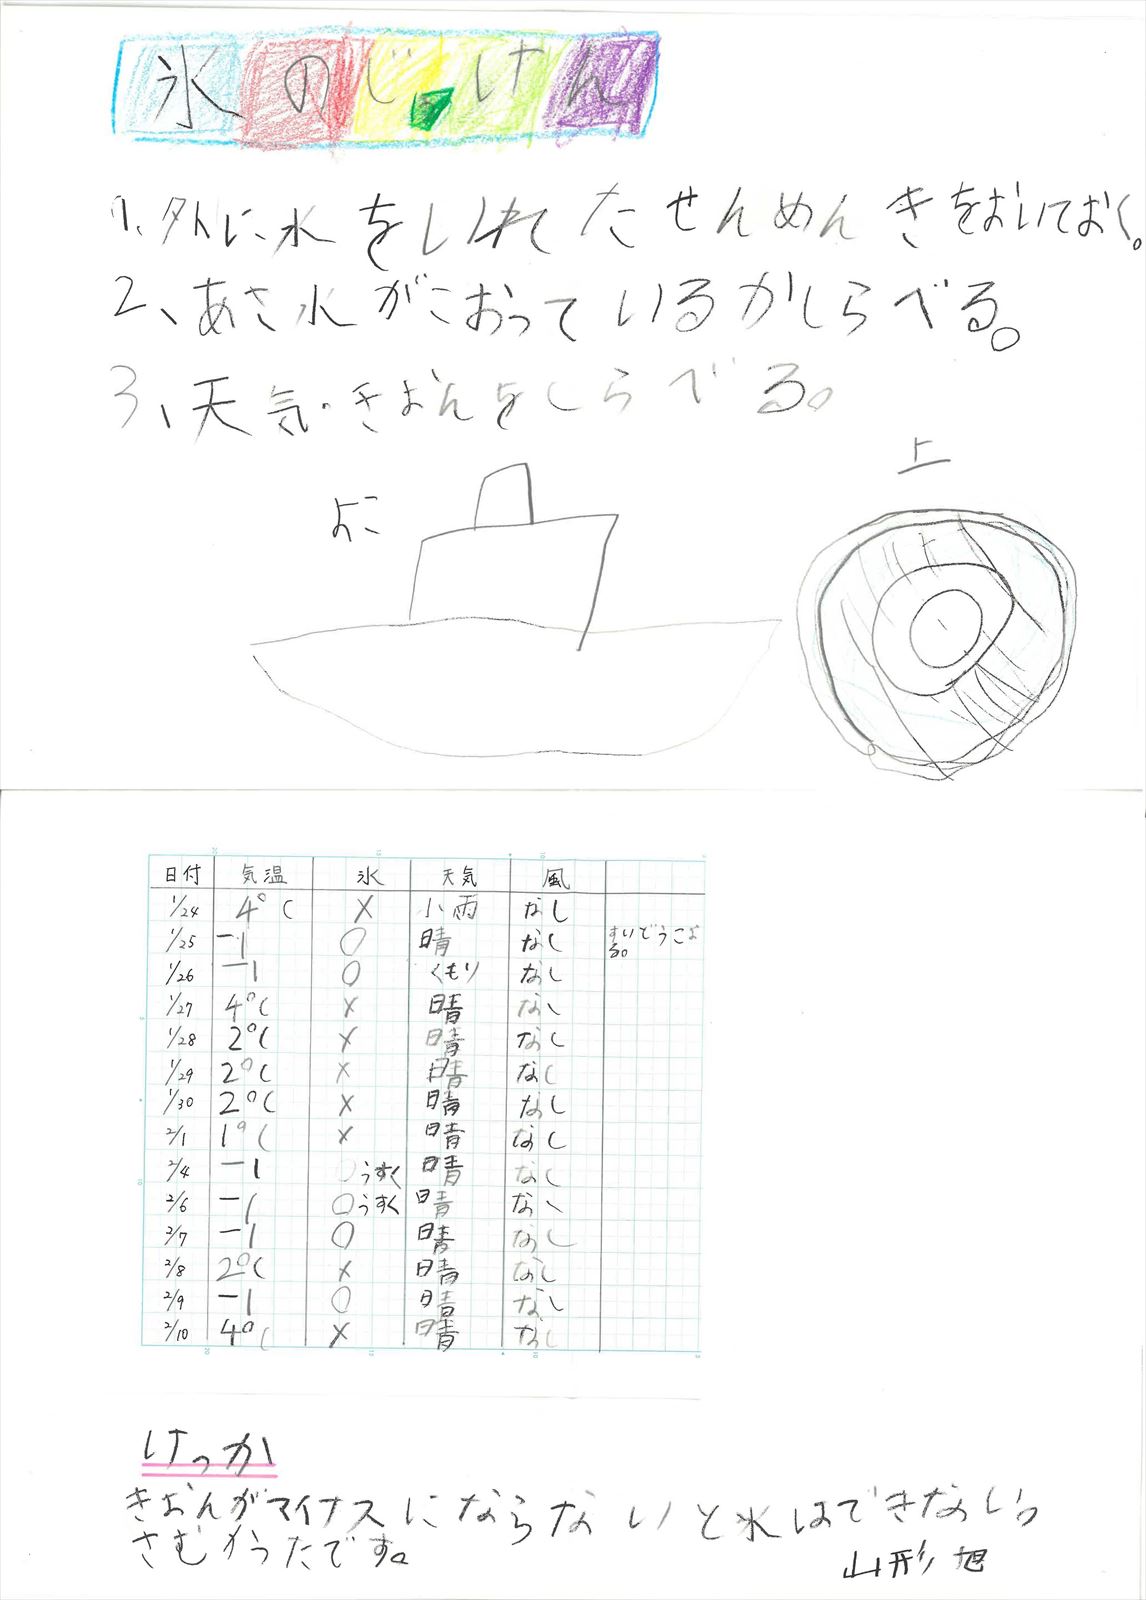 氷のじっけん
1、外に水をいれたせんめんきをおいておく。
2、あさ水がこおっているかしらべる。
3、天気・きおんをしらべる。
よこ
上
上
日付 気温 氷 天気 風
1/24 4°C × 小雨 なし
1/25 -1 ○ 晴 なし すいどうこおる。
1/26 -1 ○ くもり なし
1/27 4°C × 晴 なし
1/28 2°C × 晴 なし
1/29 2°C × 晴 なし
1/30 2°C × 晴 なし
2/1 1°C × 晴 なし
2/4 -1 ○うすく 晴 なし
2/6 -1 ○うすく 晴 なし
2/7 -1 ○ 晴 なし
2/8 2°C × 晴 なし
2/9 -1 ○ 晴 なし
2/10 4°C × 晴 なし
けっか
きおんがマイナスにならないと氷はできない。
さむかったです。
山形 旭